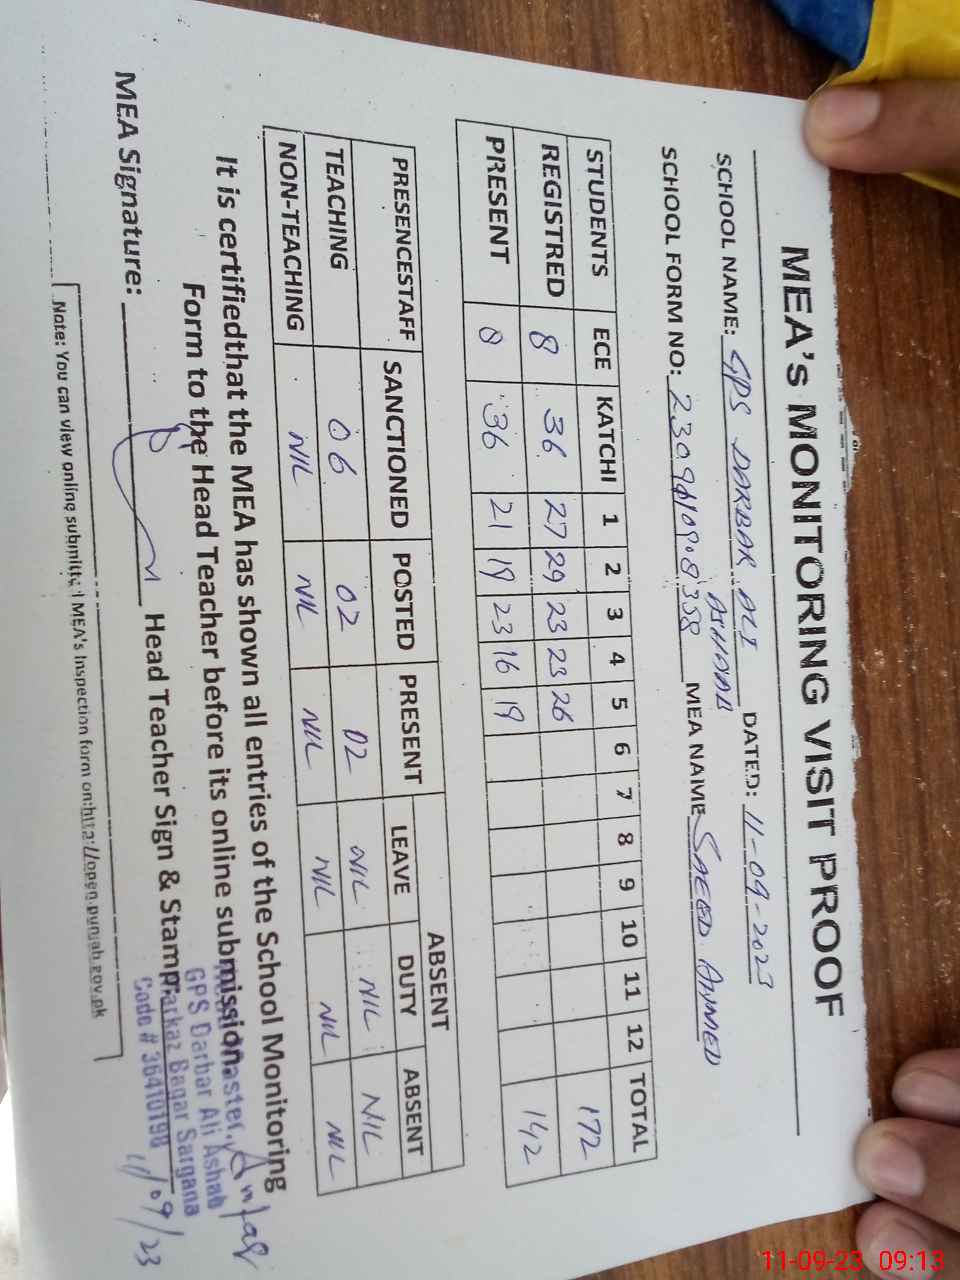 MEA's MONITORING VISIT PROOF
SCHOOL NAME: GPS DARBAR ALI ASHAAB DATED: 11-09-2023
SCHOOL FORM NO: MEA NAME SAEED AHMED
STUDENTS ECE KATCHI 1 2 3 4 5 6 7 8 9 10 11 12 TOTAL
REGISTRED 8 36 27 29 23 23 26 172
PRESENT 8 36 21 19 23 16 19 142
ABSENT
PRESENCESTAFF SANCTIONED POSTED PRESENT LEAVE DUTY ABSENT
TEACHING 06 02 02 NIL NIL NIL
NON-TEACHING NIL NIL NIL NIL NIL NIL
It is certifiedthat the MEA has shown all entries of the School Monitoring
Form to the Head Teacher before its online submission.
MEA Signature: Head Teacher Sign & Stamp:
GPS Darbar Ali Ashab
Markaz Bagar Sargana
Code # 36410198 11/09/23
Note: You can view online submitted MEA's Inspection form on:http://open.punjab.gov.pk
11-09-23 09:13